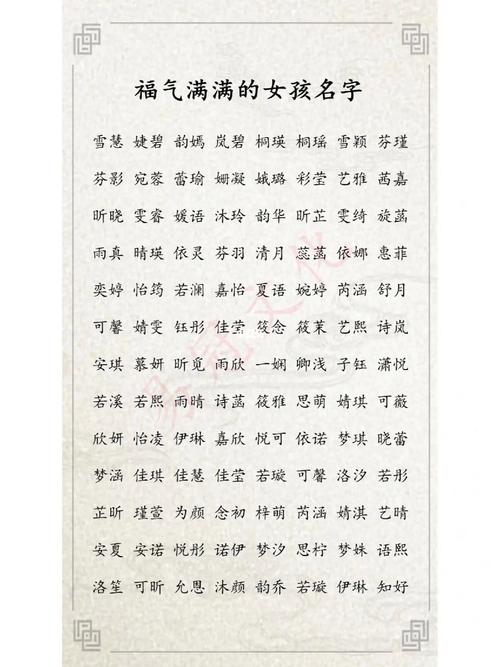 福气满满的女孩名字
雪慧 婕碧 韵嫣 岚碧 桐瑛 桐瑶 雪颖 芬瑾
芬影 宛蓉 蕾瑜 姗凝 娥璐 彩莹 艺雅 茜嘉
昕晓 雯睿 媛语 沐玲 韵华 昕芷 雯绮 旋菡
雨真 晴瑛 依灵 芬羽 清月 蕊菡 依娜 惠菲
奕婷 怡筠 若澜 嘉怡 夏语 婉婷 芮涵 舒月
可馨 婧雯 钰彤 佳莹 筱念 筱茉 艺熙 诗岚
安琪 慕妍 昕觅 雨欣 一娴 卿浅 子钰 潇悦
若溪 若熙 雨晴 诗菡 筱雅 思萌 婧琪 可薇
欣妍 怡凌 伊琳 嘉欣 悦可 依诺 梦琪 晓蕾
梦涵 佳琪 佳慧 佳莹 若璇 可馨 洛汐 若彤
芷昕 瑾萱 为颜 念初 梓萌 芮涵 婧淇 艺晴
安夏 安诺 悦彤 诺伊 梦汐 思柠 梦姝 语熙
洛笙 可昕 允恩 沐颜 韵乔 若璇 伊琳 知好